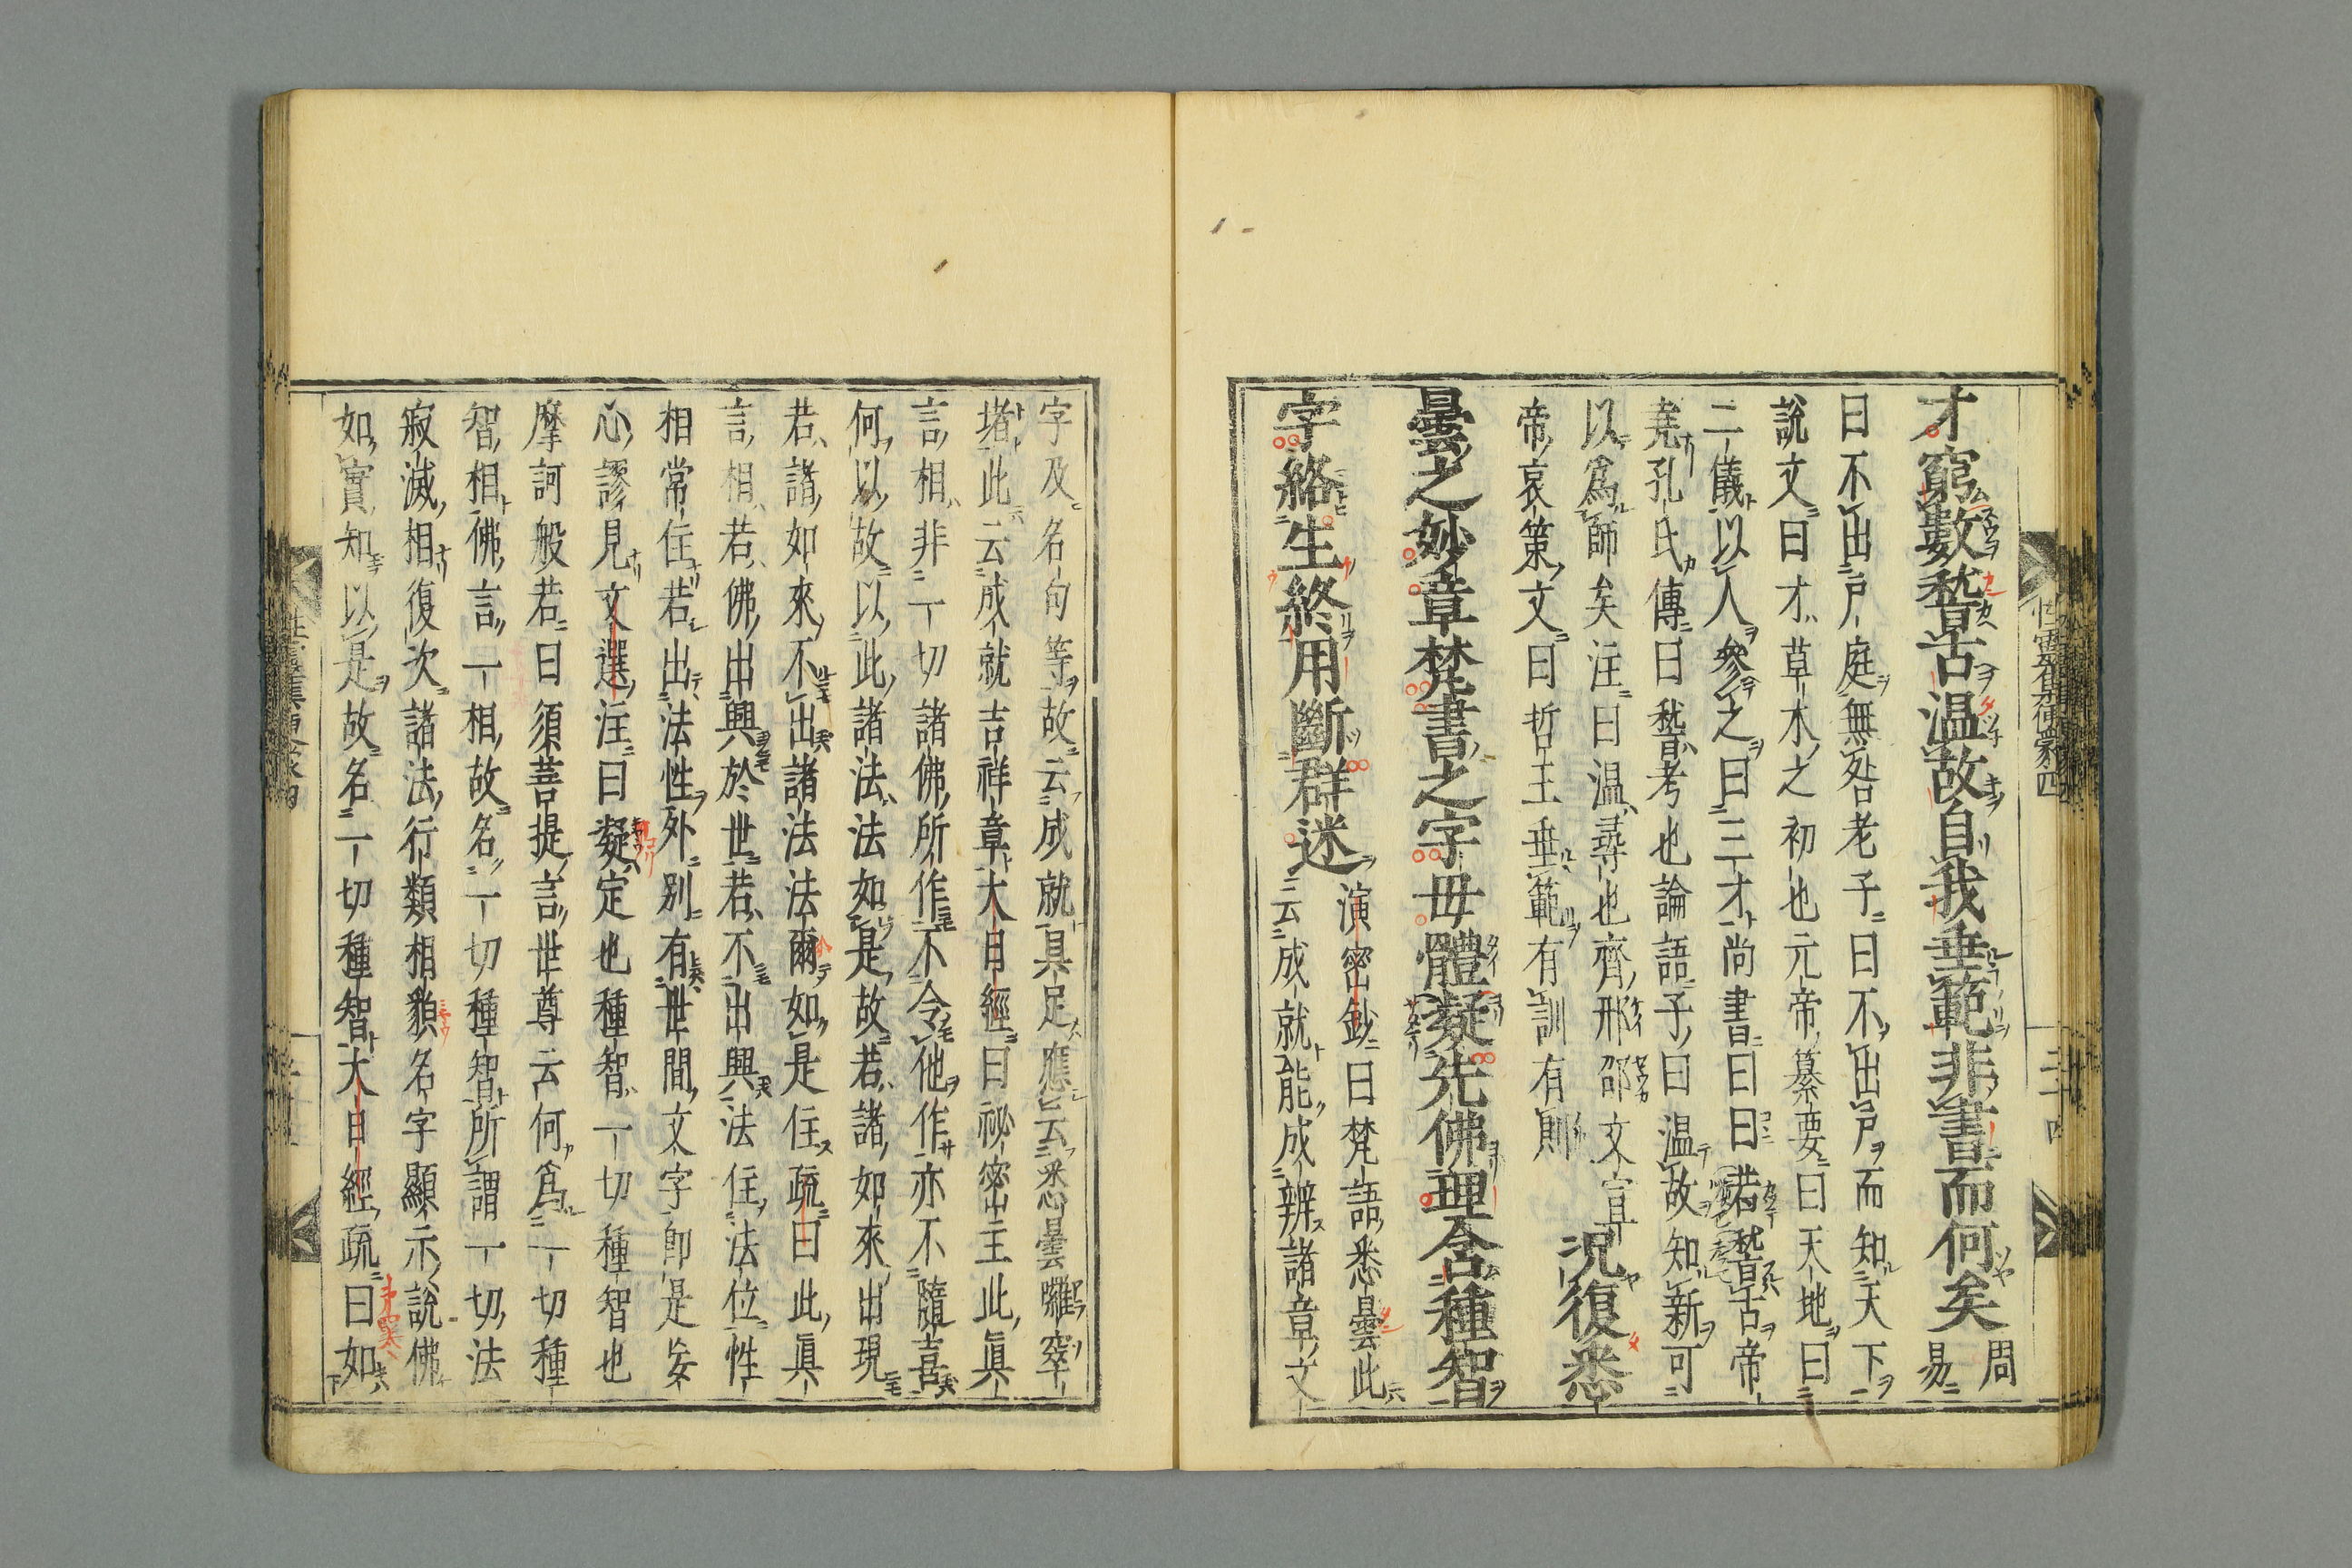 才窮數稽古温故自我垂範非書而何矣 周易
曰不出戸庭無咎老子曰不出戸而知天下
說文曰才草木之初也元帝纂要曰天地曰
二儀以人參之曰三才尚書曰曰若稽古帝
堯孔氏傳曰稽考也論語子曰温故知新可
以爲師矣注曰温尋也齊邢邵文宣
帝哀策文曰哲王垂範有訓有則 况復悉
曇之妙章梵書之字母體凝先佛理含種智
字絡生終用斷群迷 演密鈔曰梵語悉曇此
云成就能成辨諸章文
字及名句等故云成就具足應云悉曇囉窣
堵此云成就吉祥章大日經曰祕密主此眞
言相非一切諸佛所作不令他作亦不隨喜
何以故以此諸法法如是故若諸如來出現
若諸如來不出諸法法爾如是住疏曰此眞
言相若佛出興於世若不出興法住法位性
相常住若出法性外別有世間文字即是妄
心謬見文選注曰凝定也種智一切種智也
摩訶般若曰須菩提言世尊云何爲一切種
智相佛言一相故名一切種智所謂一切法
寂滅相復次諸法行類相貌名字顯示說佛
如實知以是故名一切種智大日經疏曰如